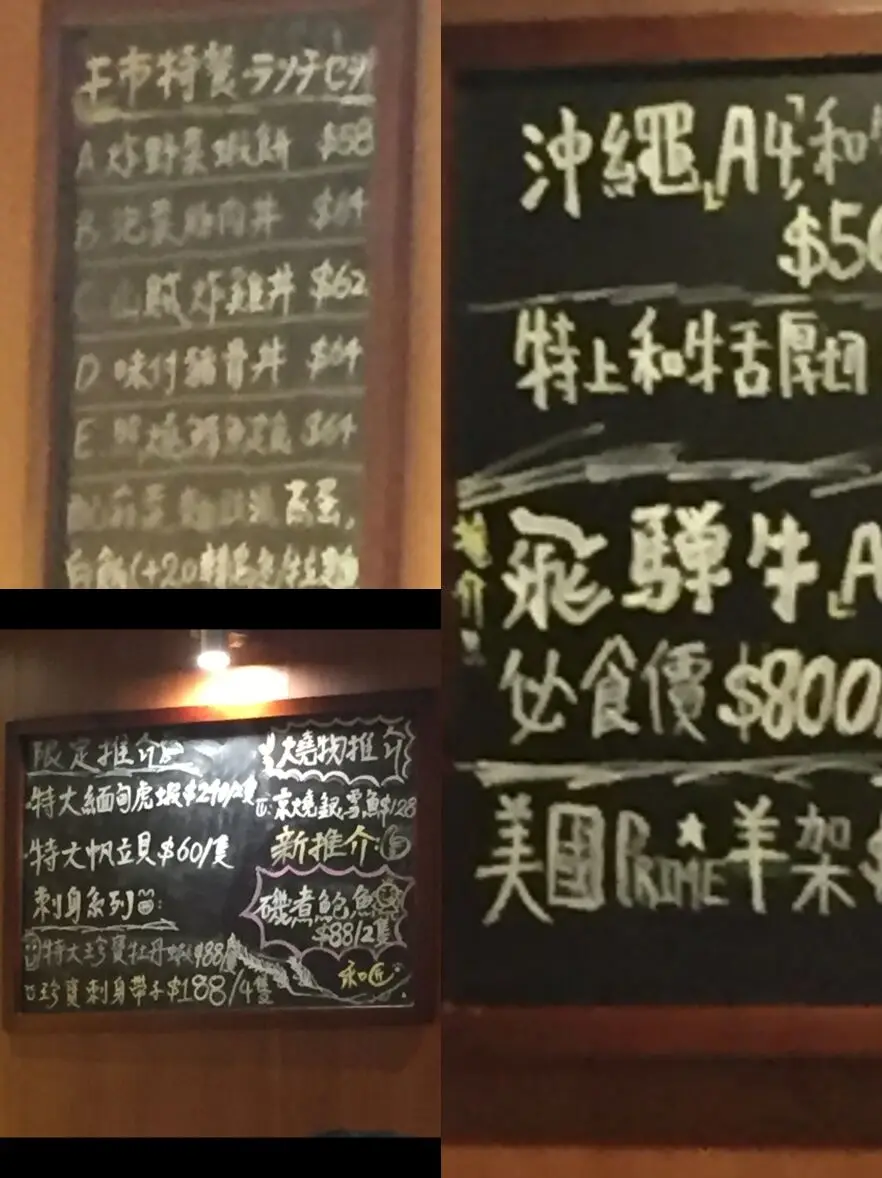 午市特餐 ランチセッ
A 炸野菜蝦餅 $58
B 泡菜豚肉丼 $64
C 山賊炸雞丼 $62
D 味付豬骨丼 $64
E $64
蒸蛋,
白飯(+20
沖繩「A4」和牛
$50
特上和牛舌厚切
推介
飛騨牛」A
必食價 $800
美國PRIME羊架 $
限定推介
特大緬甸虎蝦$290/隻
特大帆立貝$60/隻
刺身系列:
特大珍寶牡丹蝦$88/隻
珍寶刺身帶子$188/4隻
燒物推介
京燒銀雪魚$128
新推介:
磯煮鮑魚
$88/2隻
和匠